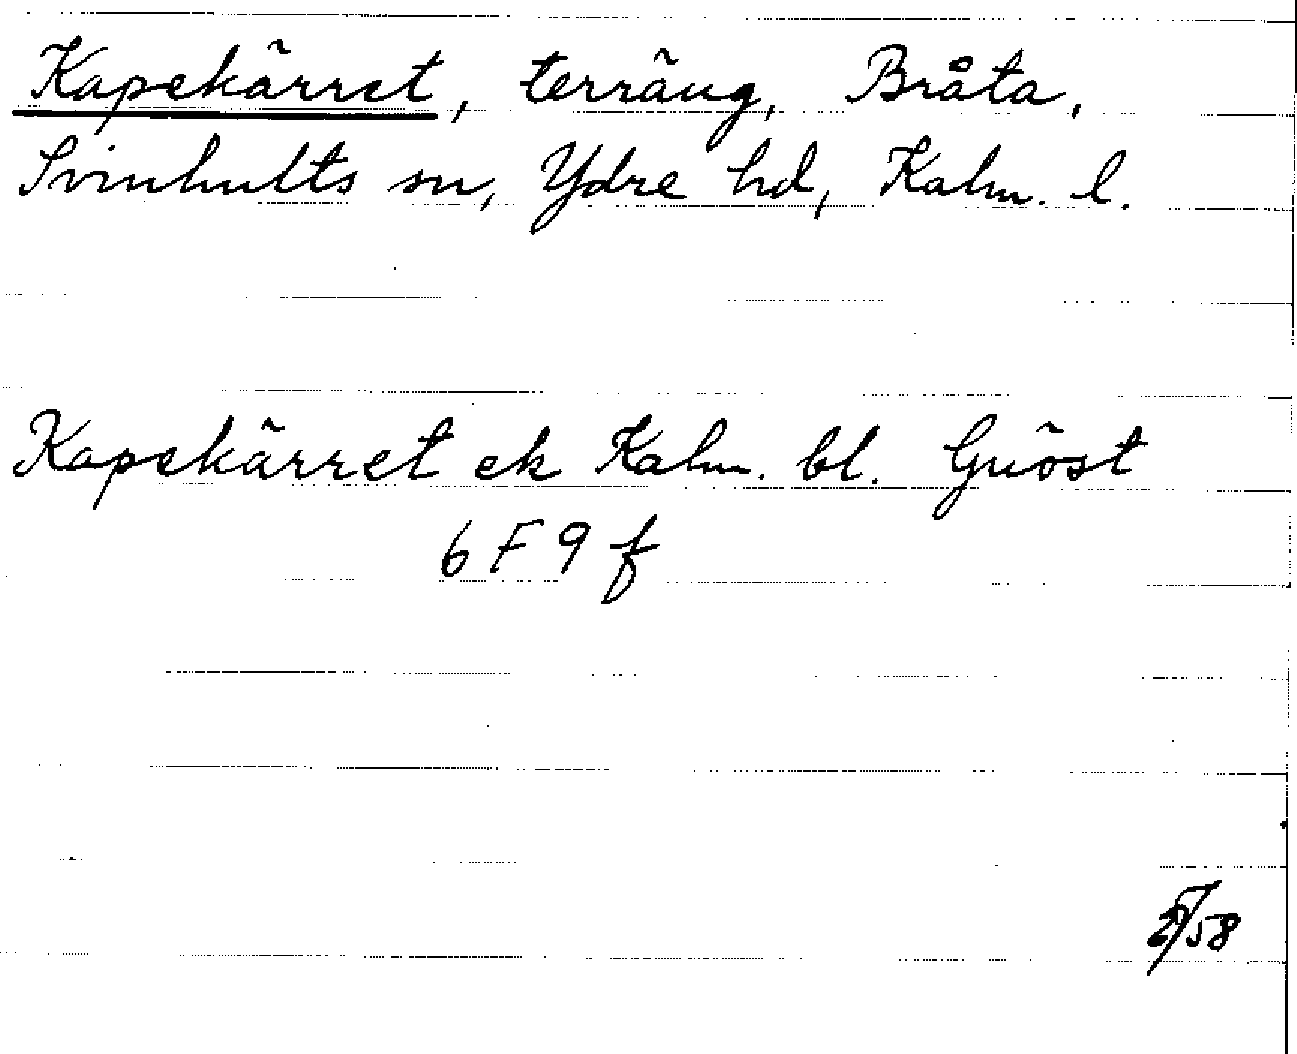 Kapekärret, terräng, Bråta,
Svinhults sn, Ydre hd, Kalm. l.
Kapekärret ek Kalm. bl. Gnöst
6 F 9 f